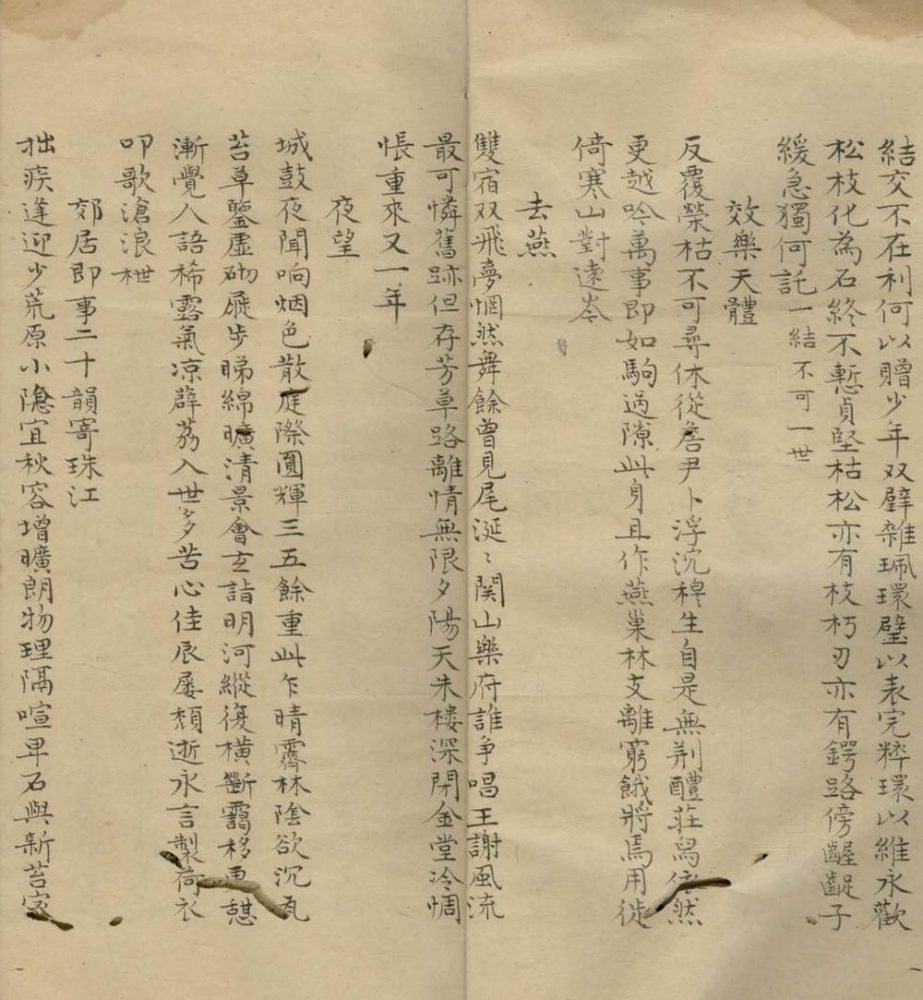 結交不在利何以贈少年双璧雜珮環璧以表完粹環以維永歡
松枝化為石終不慙貞堅枯松亦有枝朽刃亦有鍔路傍齷齪子
緩急獨何託一結不可一世
效樂天體
反覆榮枯不可尋休從詹尹卜浮沉穆生自是無荆醴莊舄依然
更越吟萬事即如駒過隙此身且作燕巢林支離窮餓將焉用徙
倚寒山對遠岑
去燕
雙宿双飛夢惘然舞餘曾見尾涎〻関山樂府誰争唱王謝風流
最可憐舊跡但存芳草路離情無限夕陽天朱楼深閉金堂冷惆
悵重來又一年
夜望
城鼓夜聞响烟色散庭際圓輝三五餘重此乍晴霽林陰欲沉瓦
苔草鑒虛砌屧步睇綿曠清景會玄詣明河縱復橫斷靄移憩
漸覺人語稀露氣凉薜荔入世多苦心佳辰屡頹逝永言製荷衣
叩歌滄浪枻
郊居即事二十韻寄珠江
拙疾逢迎少荒原小隱宜秋容增曠朗物理隔喧卑石與新苔